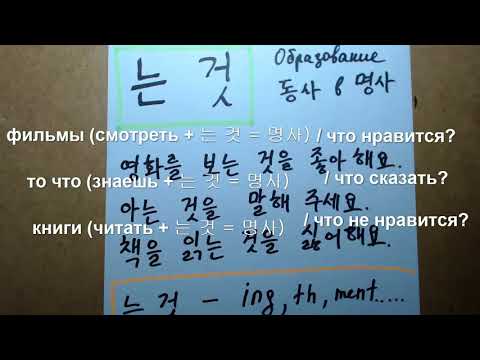 는 것
Образование
동사 в 명사
фильмы (смотреть + 는 것 = 명사) / что нравится?
영화를 보는 것을 좋아해요.
то что (знаешь + 는 것 = 명사) / что сказать?
아는 것을 말해 주세요.
книги (читать + 는 것 = 명사) / что не нравится?
책을 읽는 것을 싫어해요.
는 것 – ing, th, ment.....